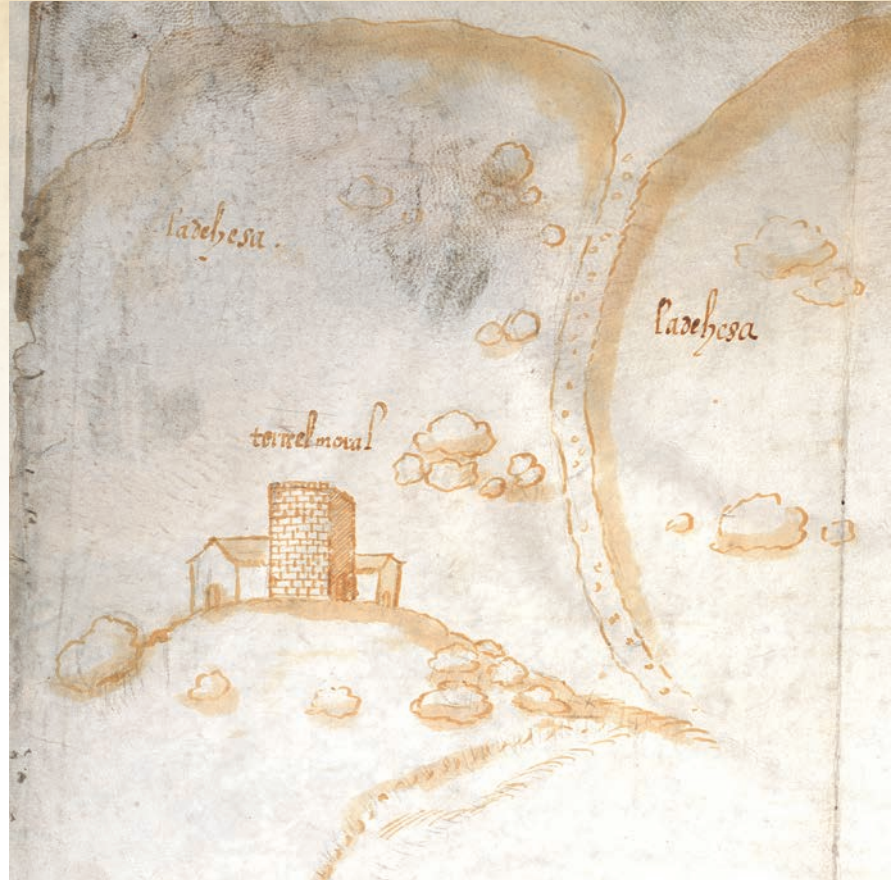 ladehesa .
ladehesa
torrelmoral